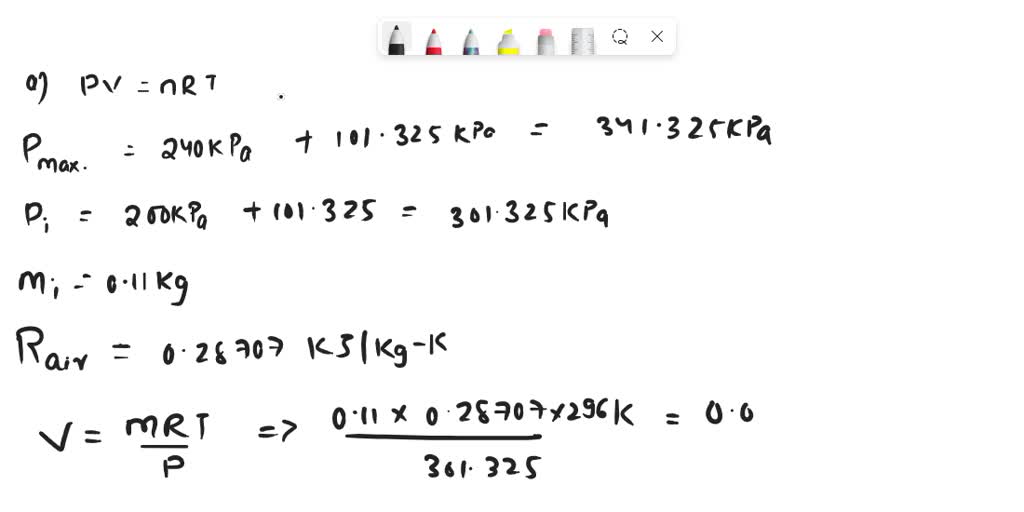 a) PV = nRT
Pmax. = 240KPa + 101.325KPa = 341.325KPa
Pi = 200KPa + 101.325 = 301.325KPa
mi = 0.11Kg
Rair = 0.28707 KJ/Kg-K
V = mRT/P => 0.11 x 0.28707 x 296K / 301.325 = 0.0